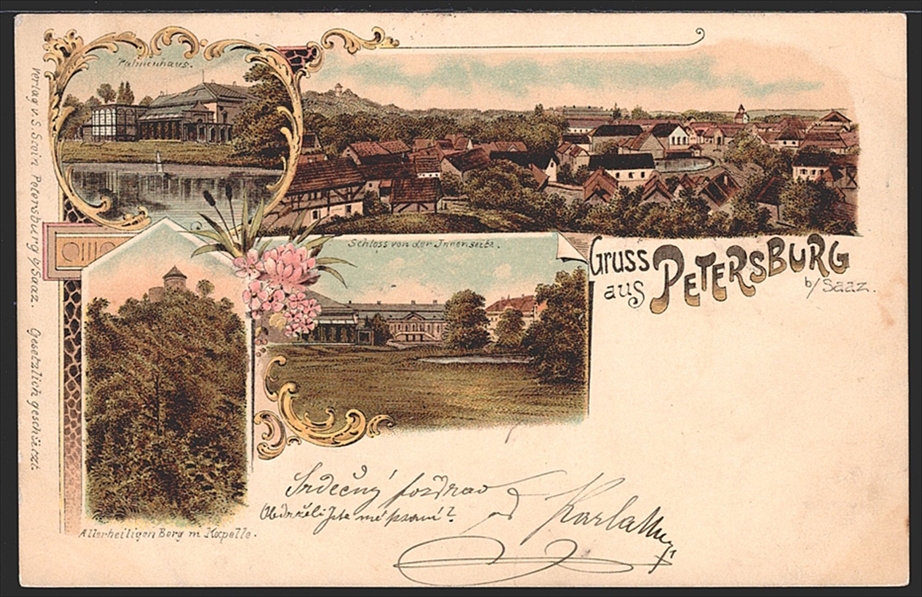 Palmenhaus.
Schloss von der Innenseite.
Gruss
aus PETERSBURG
b/Saaz.
Allerheiligen Berg m Kapelle.
Verlag v. S. Stein Petersburg b/Saaz. Gesetzlich geschützt.
Srdečný pozdrav
od Karla
Obdrželi Jste mé psaní?